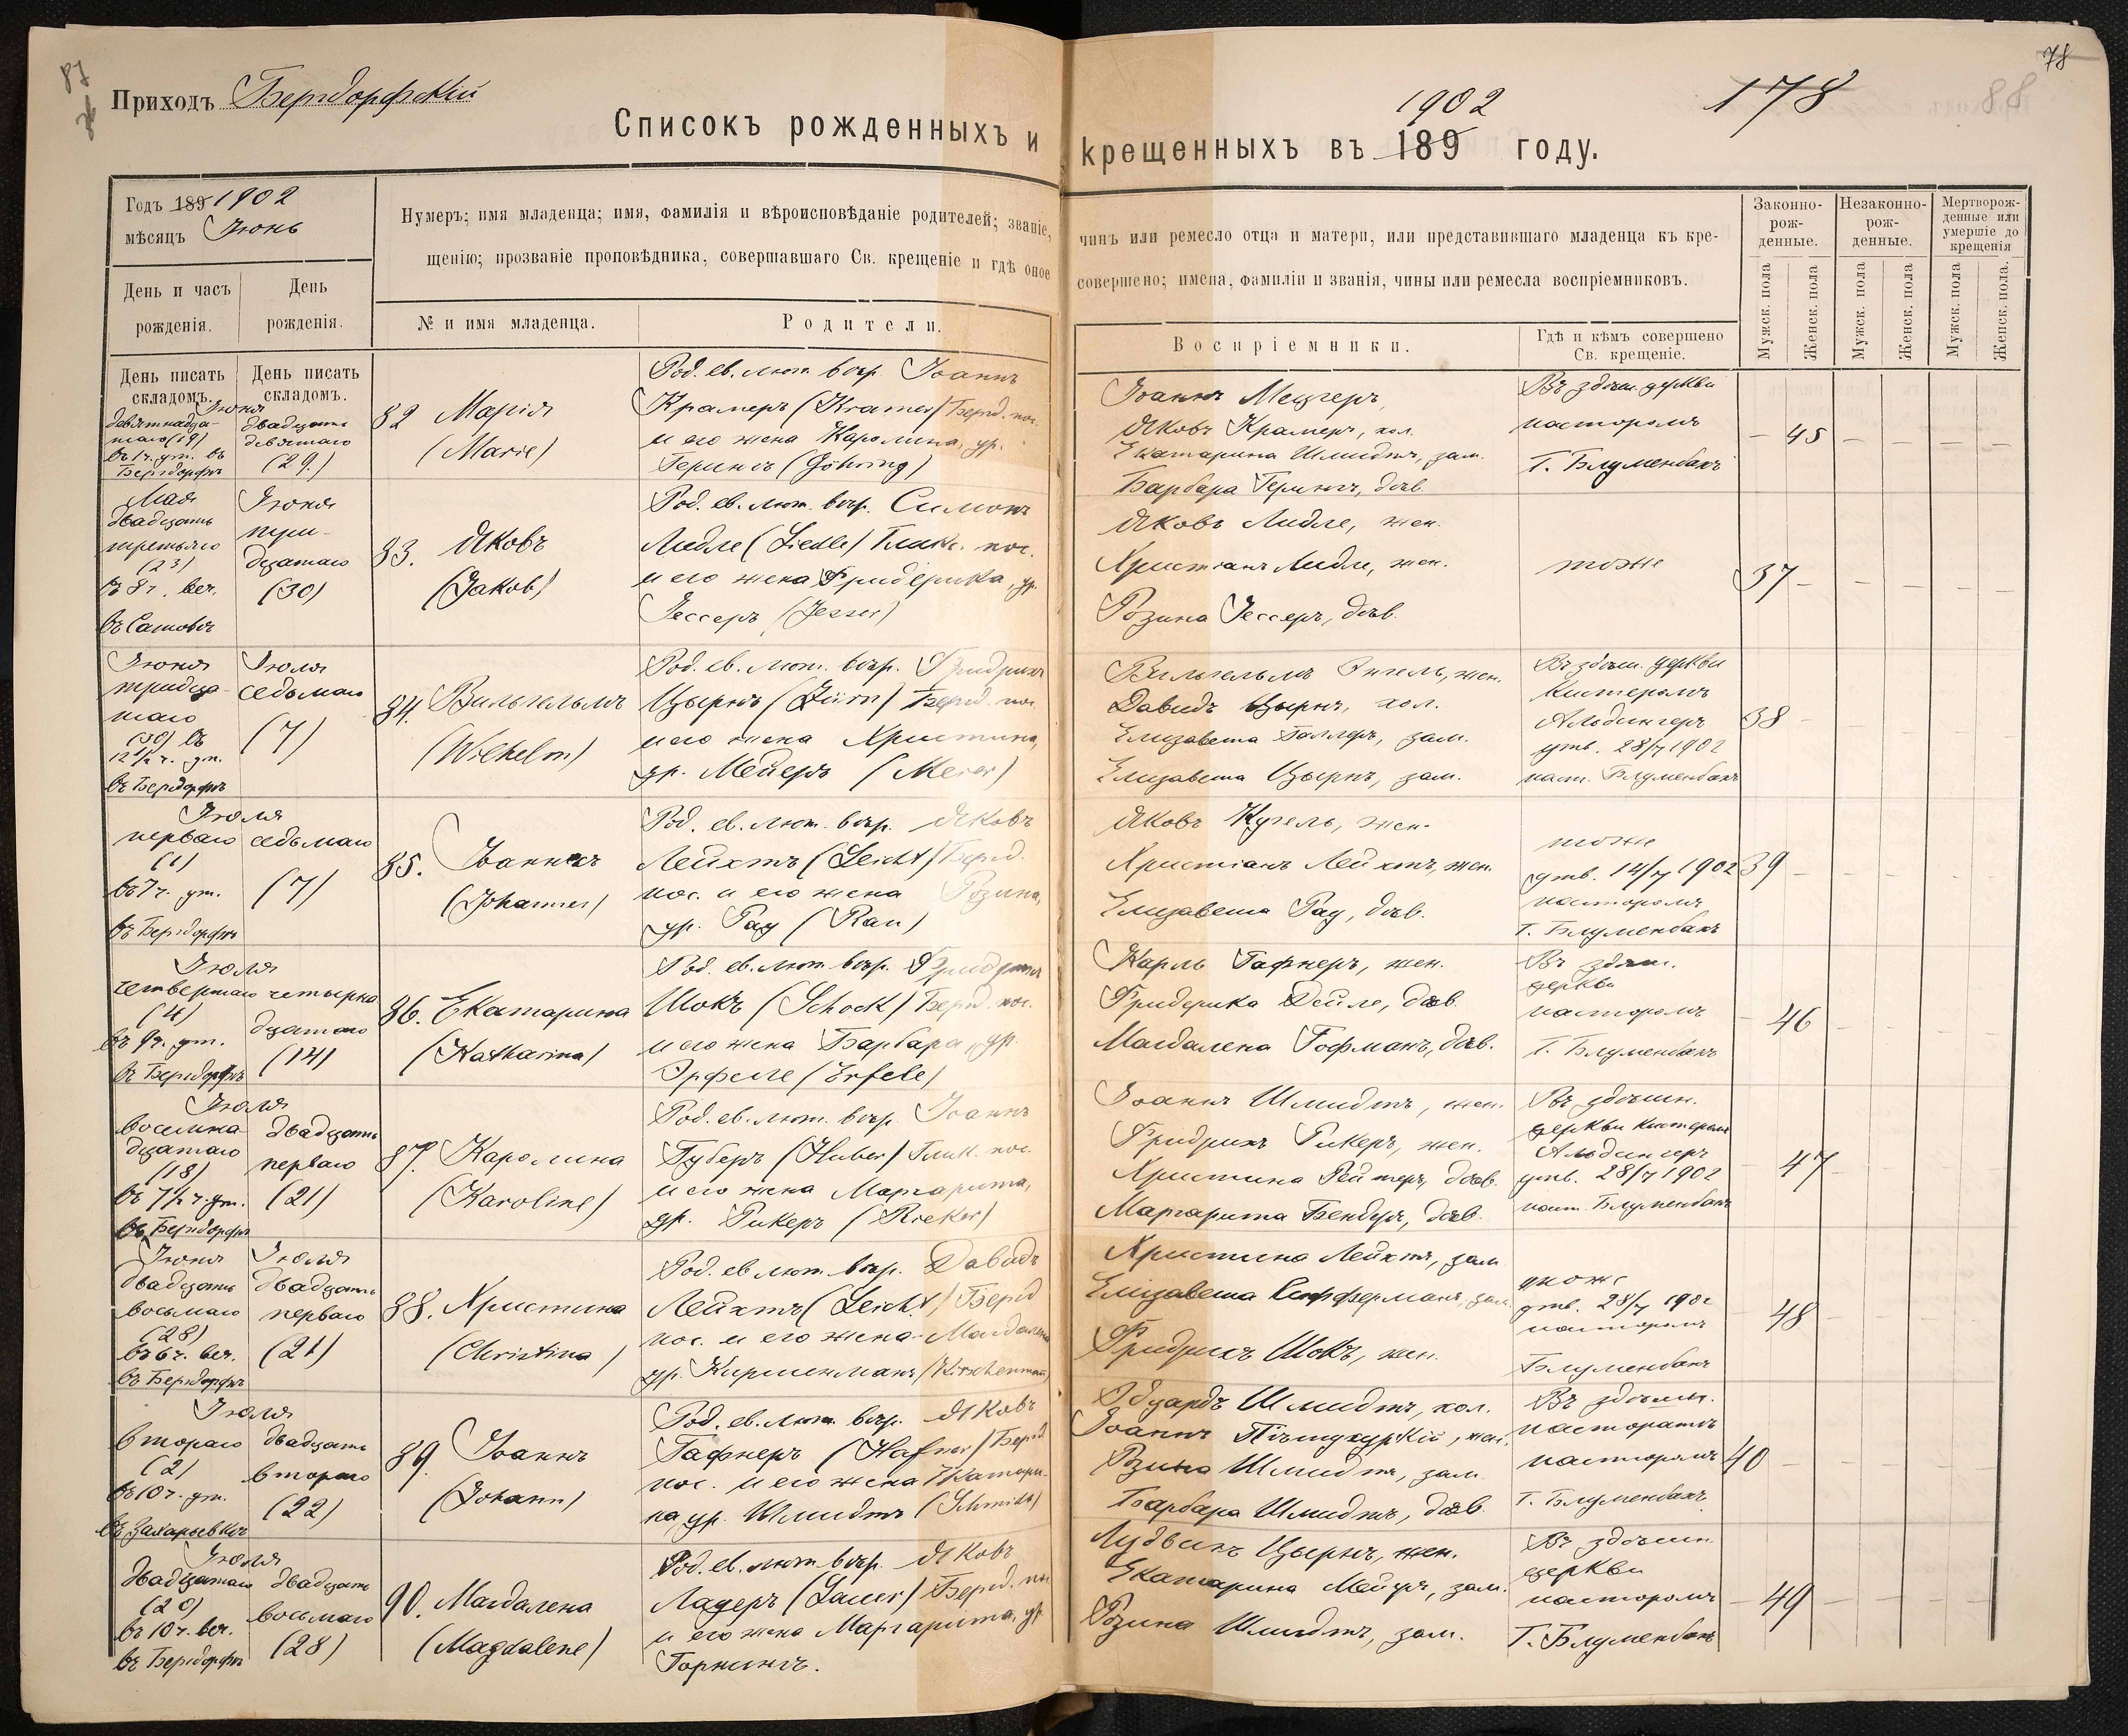 87
78
Приходъ Бергдорфскій
1902
178
88
Списокъ рожденныхъ и крещенныхъ въ 189 году.
Годъ 189 1902
мѣсяцъ Іюнь
Нумеръ; имя младенца; имя, фамилія и вѣроисповѣданіе родителей; званіе, чинъ или ремесло отца и матери, или представившаго младенца къ кре-
щенію; прозваніе проповѣдника, совершавшаго Св. крещеніе и гдѣ оное совершено; имена, фамиліи и званія, чины или ремесла воспріемниковъ.
Законно-
рож-
денные.
Незаконно-
рож-
денные.
Мертворож-
денные или
умершіе до
крещенія
День и часъ
рожденія.
День
рожденія.
№ и имя младенца.
Родители.
Воспріемники.
Гдѣ и кѣмъ совершено
Св. крещеніе.
Мужск. пола
Женск. пола
Мужск. пола
Женск. пола
Мужск. пола
Женск. пола.
День писать
складомъ.
День писать
складомъ.
Іюня
девятнадца-
таго (19)
въ 1 ч. ут. въ
Бергдорфѣ
двадцать
девятаго
(29.)
82 Марія
(Marie)
Род. ев. лют. вѣр. Іоаннъ
Крамеръ (Kramer) Бергд. пос.
и его жена Каролина, ур.
Герингъ (Göhring)
Іоаннъ Мецгеръ,
Яковъ Крамеръ, хол.
Екатарина Шмидтъ, зам.
Барбара Герингъ, дѣв.
Въ здѣш. церкви
пасторомъ
Г. Блуменбахъ
45
Мая
двадцать
третьяго
(23)
въ 8 ч. веч.
Іюня
три-
дцатаго
(30)
83. Яковъ
(Jakob)
Род. ев. лют. вѣр. Симонъ
Лидле (Liedle) Глюкс. пос.
и его жена Фридерика, ур.
Іессеръ (Jesser)
Яковъ Лидле, жен.
Христіанъ Лидле, жен.
Розина Іессеръ, дѣв.
тоже
37
Іюня
тридца-
таго
(30) въ
12 1/2 ч. ут.
въ Бергдорфѣ
Іюля
седьмаго
(7)
84. Вильгельмъ
(Wilhelm)
Род. ев. лют. вѣр. Фридрихъ
Цырнъ (Zürn) Бергд. пос.
и его жена Христина,
ур. Мейеръ (Meier)
Вильгельмъ Энгель, жен.
Давидъ Цырнъ, хол.
Елизавета Цырнъ, зам.
Въ здѣш. церкви
Кистеромъ
Альдингеръ
утв. 28/7 1902
паст. Блуменбахъ
38
Іюля
перваго
(1)
въ 7 ч. ут.
въ Бергдорфѣ
седьмаго
(7)
85. Іоаннесъ
(Johannes)
Род. ев. лют. вѣр. Яковъ
Лейхтъ (Leicht) Бергд.
пос. и его жена Розина,
ур. Рау (Rau)
Яковъ Кугель, жен.
Христіанъ Лейхтъ, жен.
Елизавета Рау, дѣв.
тоже
утв. 14/7 1902
пасторомъ
Г. Блуменбахъ
39
Іюля
четвертаго
(4)
въ 9 ч. ут.
въ Бергдорфѣ
четырна
дцатаго
(14)
86. Екатарина
(Katharina)
Род. ев. лют. вѣр. Фридрихъ
Шокъ (Schock) Бергд. пос.
и его жена Барбара, ур.
Эрфеле (Erfele)
Карлъ Гафнеръ, жен.
Фридерика Дейле, дѣв.
Магдалена Гофманъ, дѣв.
Въ здѣш.
церкви
пасторомъ
Г. Блуменбахъ
46
Іюля
восемна-
дцатаго
(18)
въ 7 1/2 ч. ут.
въ Бергдорфѣ
двадцать
перваго
(21)
87. Каролина
(Karoline)
Род. ев. лют. вѣр. Іоаннъ
Губеръ (Huber) Глюк. пос.
и его жена Маргарита,
ур. Рикеръ (Rieker)
Іоаннъ Шмидтъ, жен.
Фридрихъ Рикеръ, жен.
Христина Рейтеръ, дѣв.
Маргарита Бендеръ, дѣв.
Въ здѣшн.
церкви Кистеромъ
Альдингеръ
утв. 28/7 1902
паст. Блуменбахъ
47
Іюня
двадцать
восьмаго
(28)
въ 6 ч. веч.
въ Бергдорфѣ
Іюля
двадцать
перваго
(21)
88. Христина
(Christina)
Род. ев. лют. вѣр. Давидъ
Лейхтъ (Leicht) Бергд
пос. и его жена Магдалена
ур. Киршенманъ (Kirschenmann)
Христина Лейхтъ, зам
Фридрихъ Шокъ, жен.
тоже
утв. 28/7 1902
пасторомъ
Блуменбахъ
48
Іюля
втораго
(2)
въ 10 ч. ут.
въ Захарьевкѣ
двадцать
втораго
(22)
89. Іоаннъ
(Johann)
Род. ев. лют. вѣр. Яковъ
Гафнеръ (Hafner) Бергд.
пос. и его жена Катари-
на ур. Шмидтъ (Schmidt)
Эдуардъ Шмидтъ, хол.
Розина Шмидтъ, зам.
Барбара Шмидтъ, дѣв.
Въ здѣшн.
пасторатѣ
пасторомъ
Г. Блуменбахъ
40
Іюля
двадцатаго
(20)
въ 10 ч. веч.
въ Бергдорфѣ
двадцать
восьмаго
(28)
90. Магдалена
(Magdalene)
Род. ев. лют. вѣр. Яковъ
Лауеръ (Lauer) Бергд. пос
и его жена Маргарита, ур.
Горнингъ.
Лудвигъ Цырнъ, жен.
Екатарина Мейеръ, зам.
Розина Шмидтъ, зам.
Въ здѣшн.
церкви
пасторомъ
Г. Блуменбахъ
49